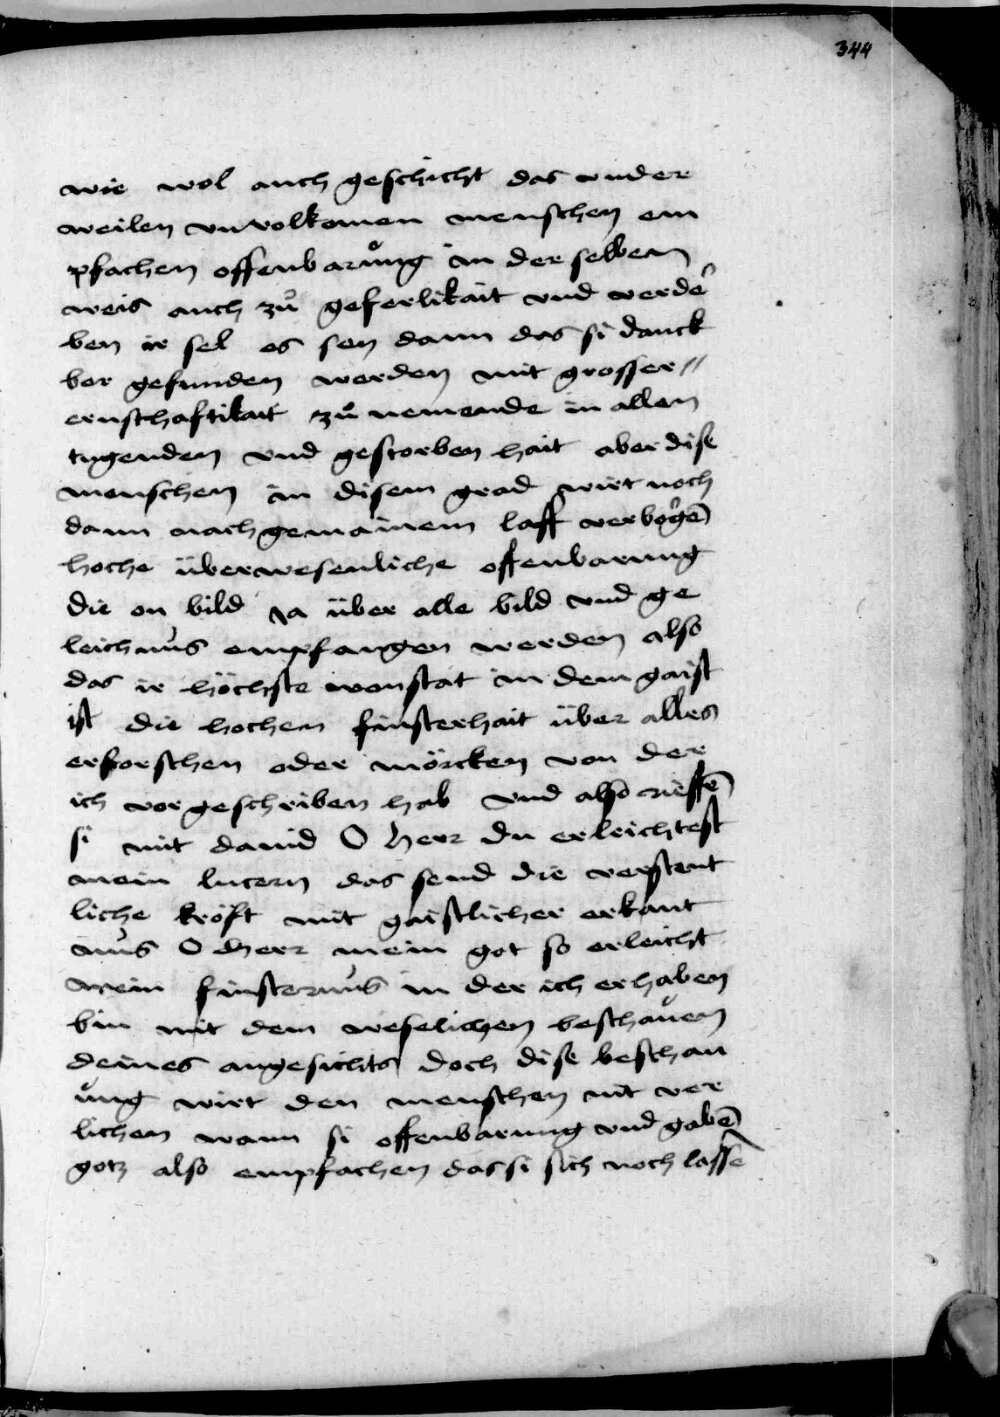 344
wie wol auch geschicht das vnder
weilen vnvolkomen menschen em
pfachen offenbarůng in der selben
weis auch zů geferlikait vnd verde
ben ir sel es sey dann das si danck
ber gefunden werden mit grosser//
ernschaftikait zů nemende in allen
tugenden vnd gestorben hait aber dise
menschen in disem grad wirt noch
dann nach gemainem laff verborgē
hoche überwesenliche offenbarung
die on bild ja über alle bild vnd ge
leichnus empfangen werden also
das ir höchste wonstat in dem gaist
ist die hochen finsterhait über alles
erforschen oder mörcken von der
ich vor geschriben hab vnd also rieffē
si mit dauid O Herr du erleichtest
mein lucern das send die verstent
liche kröft mit gaistlicher erkant
nus O Herr mein got so erleicht
mein finsternus in der ich erhaben
bin mit dem weselichen beschauen
deines angesichts doch dise beschau
ung wirt den menschen nit ver
lichen wann si offenbarung vnd gabē
gotz also empfachen das si sich noch lassē